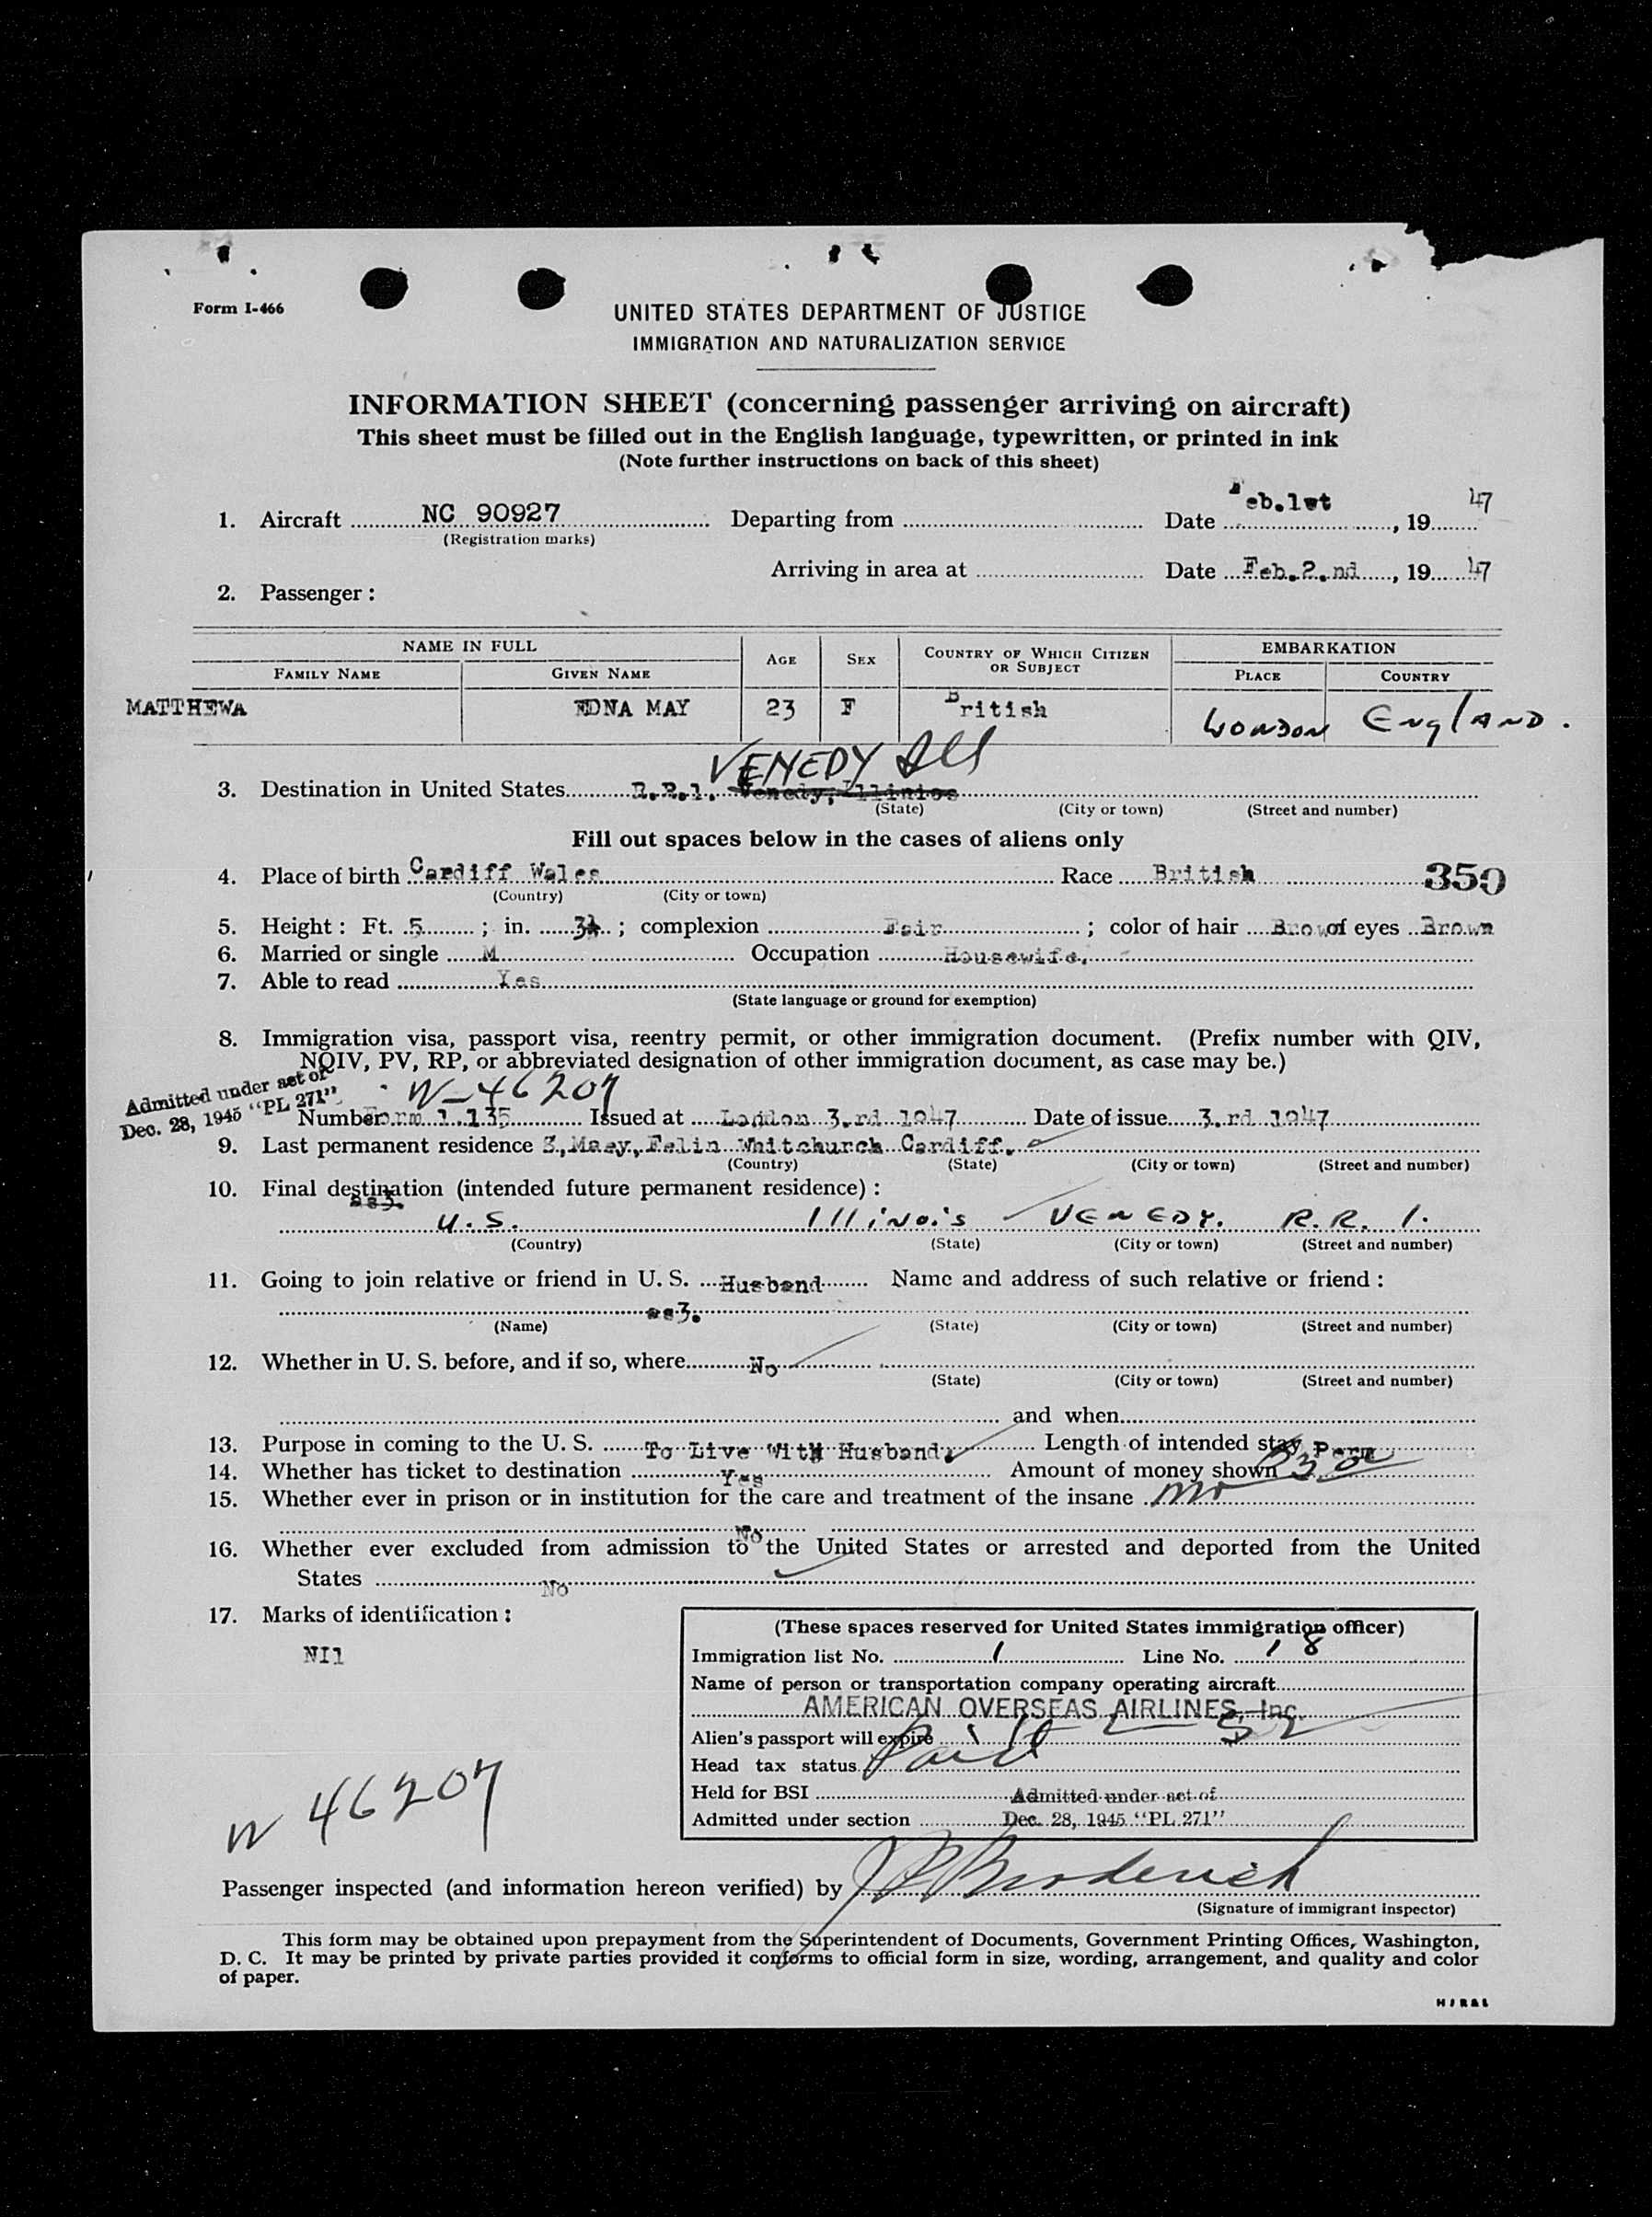 Form I-466
UNITED STATES DEPARTMENT OF JUSTICE
IMMIGRATION AND NATURALIZATION SERVICE
INFORMATION SHEET (concerning passenger arriving on aircraft)
This sheet must be filled out in the English language, typewritten, or printed in ink
(Note further instructions on back of this sheet)
1. Aircraft NC 90927 Departing from Date Feb.1st, 19 47
(Registration marks)
Arriving in area at Date Feb.2.nd, 19 47
2. Passenger:
NAME IN FULL AGE SEX COUNTRY OF WHICH CITIZEN OR SUBJECT EMBARKATION
FAMILY NAME GIVEN NAME PLACE COUNTRY
MATTHEWA EDNA MAY 23 F British LONDON ENGLAND.
VENEDY Ill
3. Destination in United States R.R.1. Venedy, Illinios
(State) (City or town) (Street and number)
Fill out spaces below in the cases of aliens only
4. Place of birth Cardiff Wales Race British 350
(Country) (City or town)
5. Height: Ft. 5 ; in. 3½ ; complexion Fair ; color of hair Brow of eyes Brown
6. Married or single M Occupation Housewife.
7. Able to read Yes
(State language or ground for exemption)
8. Immigration visa, passport visa, reentry permit, or other immigration document. (Prefix number with QIV,
NQIV, PV, RP, or abbreviated designation of other immigration document, as case may be.)
Admitted under act of
Dec. 28, 1945 "PL 271"
W-46207
Number Form 1.135 Issued at London 3.rd 1947 Date of issue 3.rd 1947
9. Last permanent residence 3, Maey, Felin Whitchurch Cardiff.
(Country) (State) (City or town) (Street and number)
10. Final destination (intended future permanent residence):
as3.
U.S. Illinois VENEDY. R.R. 1.
(Country) (State) (City or town) (Street and number)
11. Going to join relative or friend in U. S. Husband Name and address of such relative or friend:
as3.
(Name) (State) (City or town) (Street and number)
12. Whether in U. S. before, and if so, where No
(State) (City or town) (Street and number)
and when
13. Purpose in coming to the U. S. To Live With Husband. Length of intended stay Perm
14. Whether has ticket to destination Yes Amount of money shown
15. Whether ever in prison or in institution for the care and treatment of the insane No
No
16. Whether ever excluded from admission to the United States or arrested and deported from the United
States No
17. Marks of identification:
NIl
(These spaces reserved for United States immigration officer)
Immigration list No. 1 Line No. 18
Name of person or transportation company operating aircraft
AMERICAN OVERSEAS AIRLINES, Inc.
Alien's passport will expire
Head tax status Paid
Held for BSI Admitted under act of
Admitted under section Dec. 28, 1945 "PL 271"
W 46207
Passenger inspected (and information hereon verified) by
(Signature of immigrant inspector)
This form may be obtained upon prepayment from the Superintendent of Documents, Government Printing Offices, Washington,
D. C. It may be printed by private parties provided it conforms to official form in size, wording, arrangement, and quality and color
of paper.